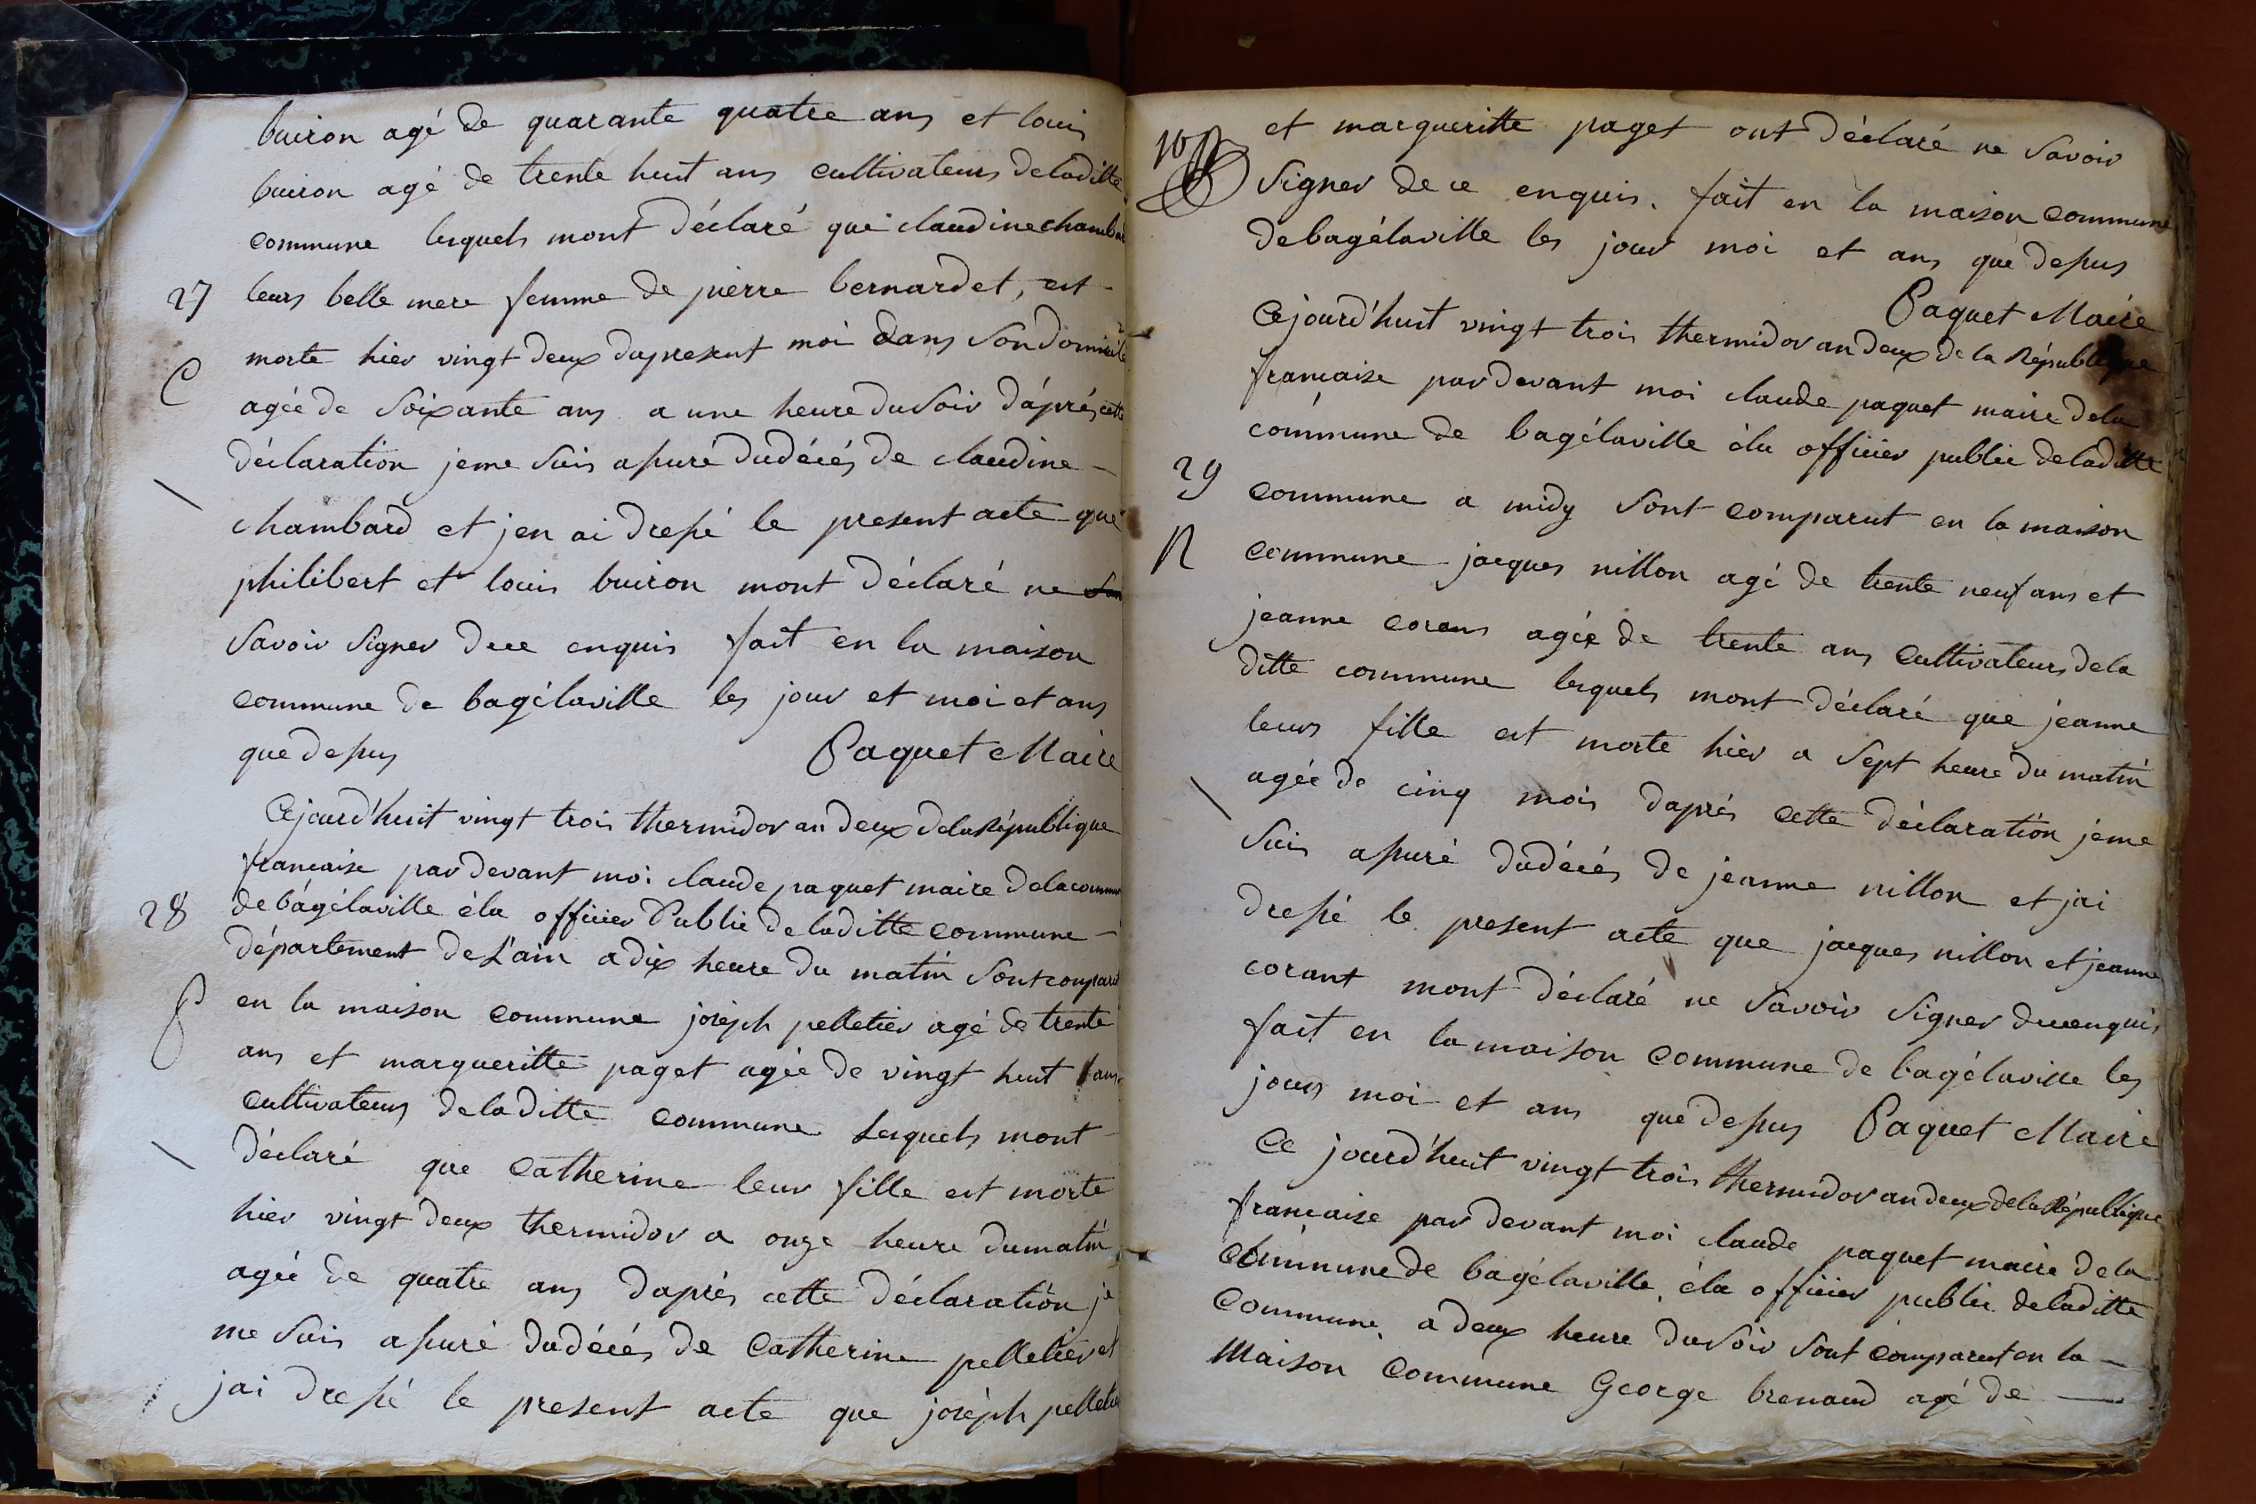 buiron agé de quarante quatre ans et louis
buiron agé de trente huit ans cultivateurs deladitte
commune lesquels mont déclaré que claudine chambar
27 leurs belle mere femme de pierre bernardet, est
morte hier vingt deux dupresent moi dans son domicile
C
agée de soixante ans a une heure dusoir d'áprés cette
déclaration jeme suis assuré dudécés de claudine
chambard et jen ai dressé le present acte que
philibert et louis buiron mont déclaré ne
savoir signer dece enquis fait en la maison
commune de bagélaville les jour et moi et ans
que dessus Paquet Maire
Cejourd'huit vingt trois thermidor an deux delaRépublique
francaise pardevant moi claude paquet maire delacommu
28 debagélaville élu officier Public de laditte commune
département deL'ain adix heure du matin sont comparut
P en la maison commune joséph pelletier agé de trente
ans et margueritte paget agée de vingt huit ans
cultivateurs deladitte commune Lesquels mont
déclaré que Catherine leur fille est morte
hier vingt deux thermidor a onze heure dumatin
agée de quatre ans daprés cette déclaration je
me suis assuré dudécés de Catherine pelletier et
jai dressé le present acte que joséph pelletie
10 et margueritte paget ont déclaré ne savoir
signer de ce enquis. fait en la maison commune
debagélaville les jour moi et ans que dessus
Paquet Maire
Cejourd'huit vingt trois thermidor an deux de la République
francaise pardevant moi claude paquet maire dela
commune de bagélaville élu officier public deladitte
29 commune a midy sont comparut en la maison
N commune jacques nillon agé de trente neuf ans et
jeanne corans agée de trente ans cultivateurs dela
ditte commune lesquels mont déclaré que jeanne
leurs fille est morte hier a sept heure du matin
agée de cinq mois daprés cette déclaration jeme
suis assuré dudécés de jeanne nillon et jai
dressé le present acte que jacques nillon et jeanne
corant mont déclaré ne savoir signer dece enquis
fait en la maison commune de bagélaville les
jours moi et ans que dessus Paquet Maire
Ce jourd'huit vingt trois thermidor an deux dela République
francaise par devant moi claude paquet maire dela
commune de bagélaville, élu officier public deladitte
Commune, a deux heure dusoir sont comparut en la
Maison Commune George brenaud agé de